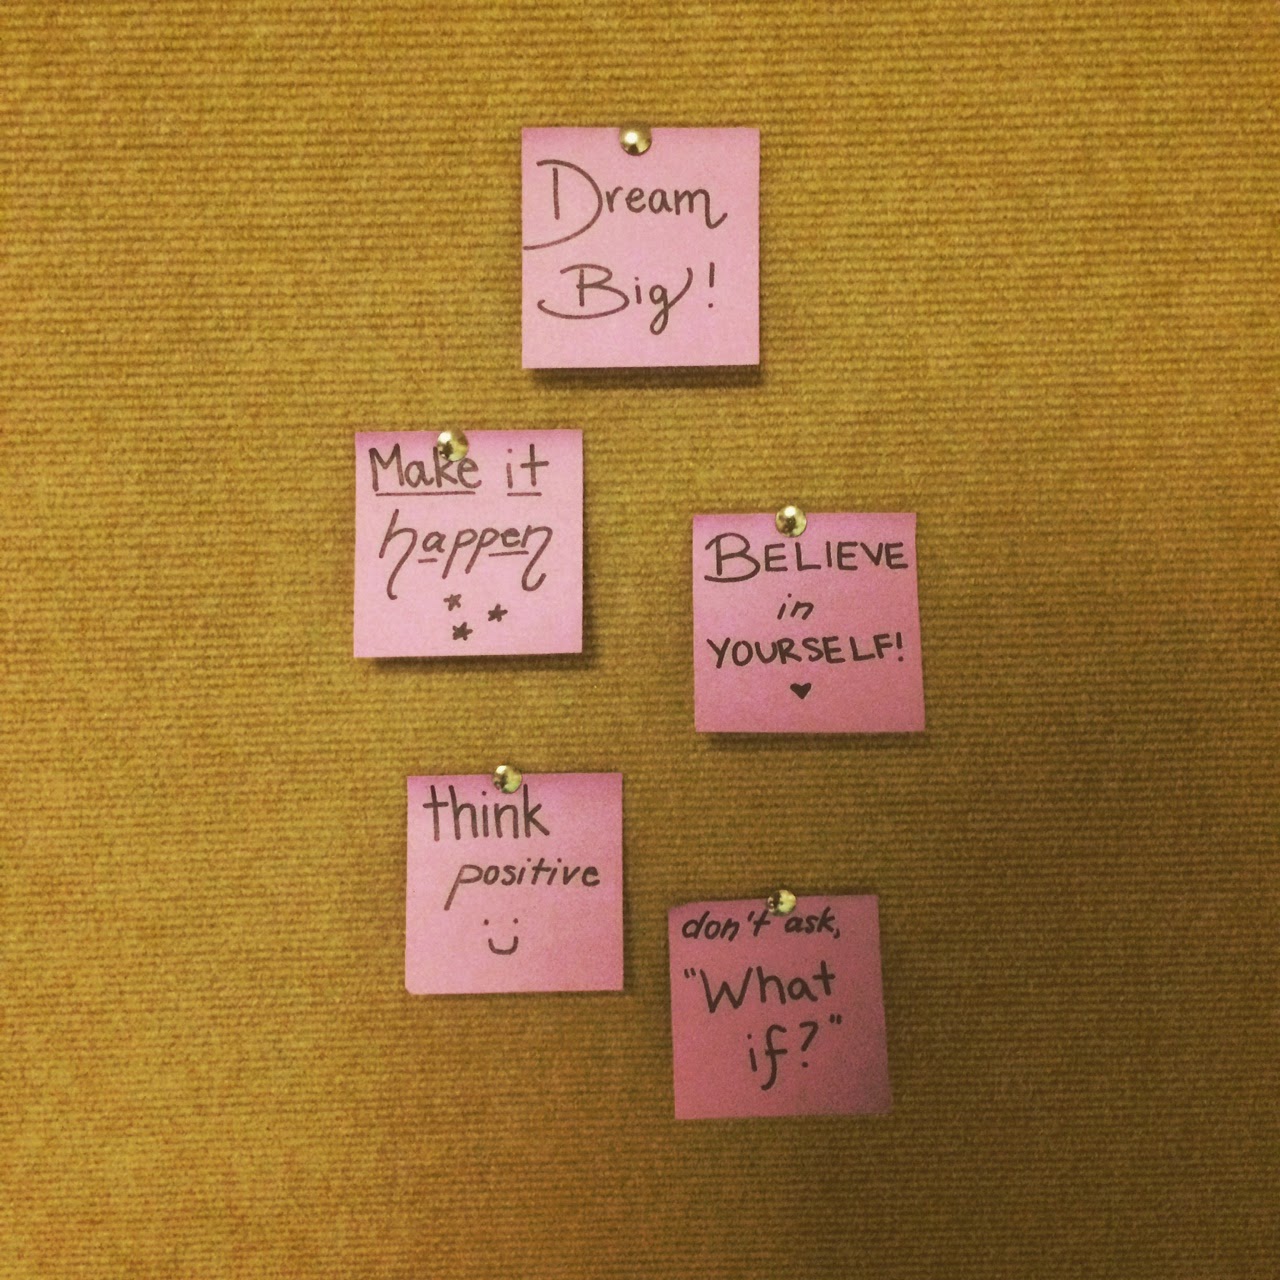 Dream
Big!
Make it
happen
BELIEVE
in
YOURSELF!
think
positive
don't ask,
"What
if?"